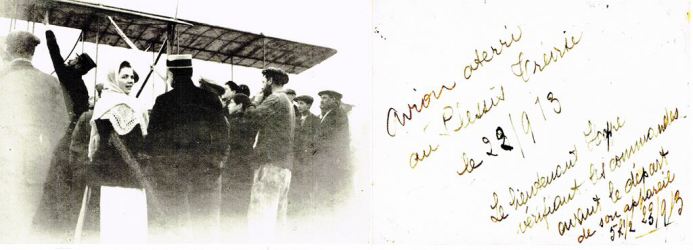 Avion aterri
au Plessis Trévise
le 22/9/13
Le lieutenant
vérifiant les commandes
avant le départ
de son appareil
23/9/13